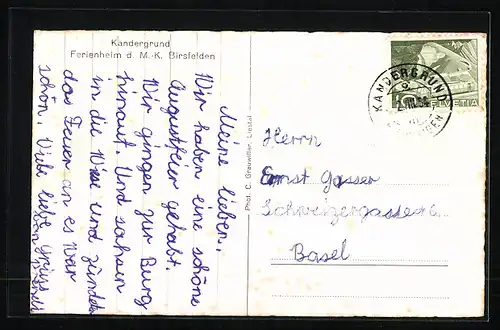 Kandergrund
Ferienheim d. M.-K. Birsfelden
Meine lieben.
Wir haben eine schöne
Augustfeier gehabt.
Wir gingen zur Burg
hinauf. Und sahen
in die Wiese und zündeten
das Feuer an es war
schön. Viele liebe Grüsse
Phot. C. Grauwiller, Liestal
KANDERGRUND
HELVETIA
10
Herrn
Ernst Gasser
Schweizergasse
Basel